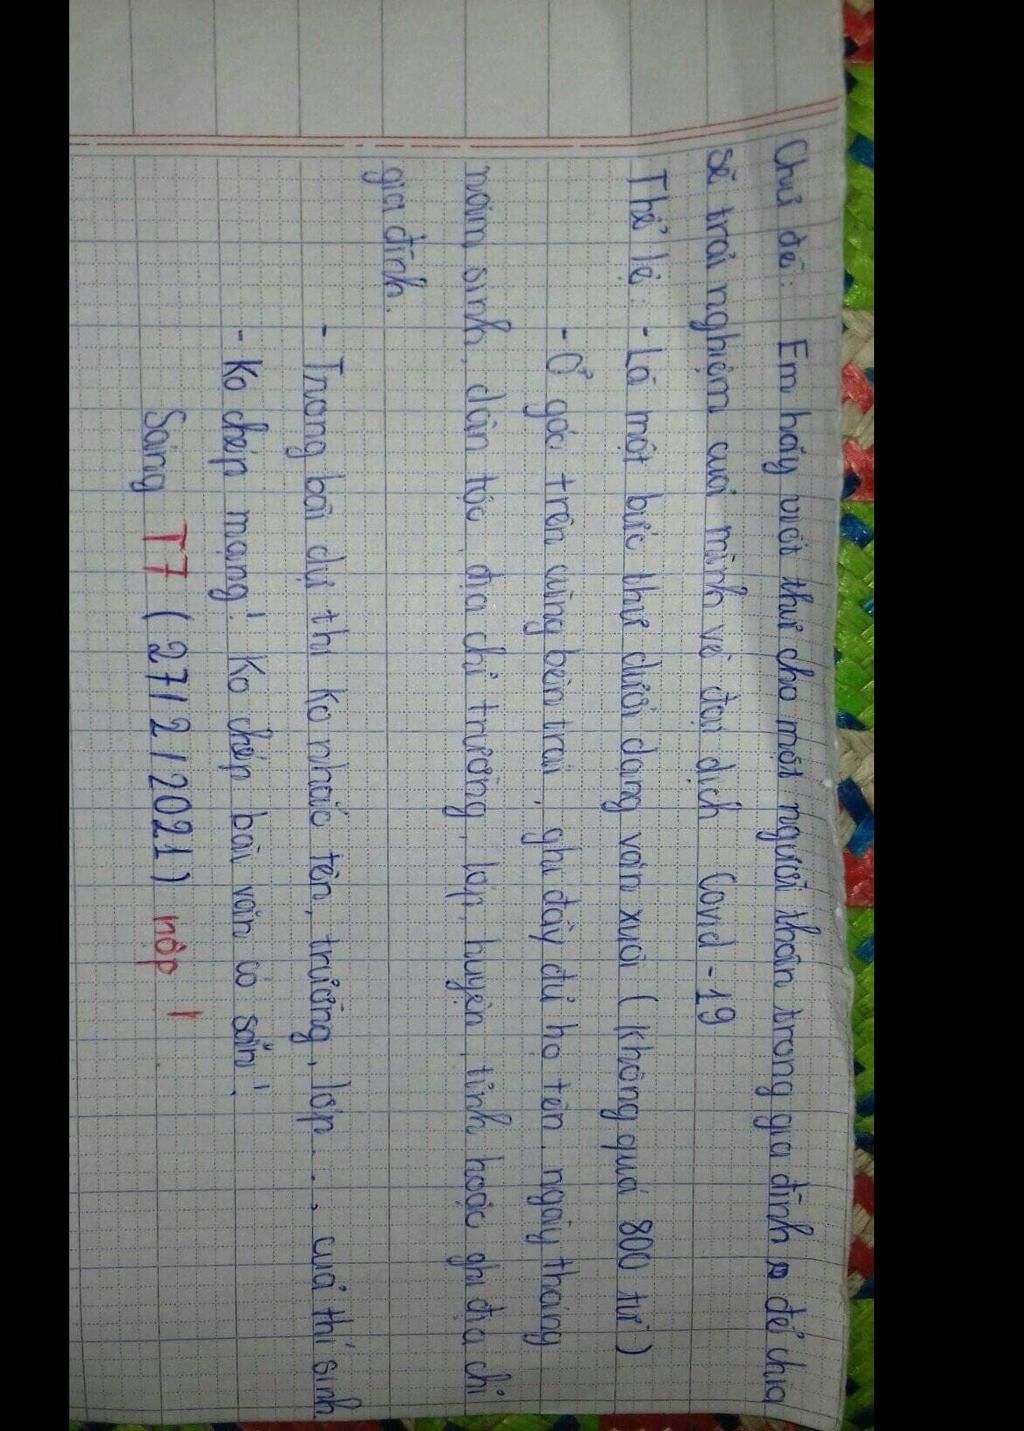 Chủ đề: Em hãy viết thư cho một người thân trong gia đình để chia
sẻ trải nghiệm của mình về đại dịch Covid-19
Thể lệ: - Là một bức thư dưới dạng văn xuôi (không quá 800 từ)
- Ở góc trên cùng bên trái, ghi đầy đủ họ tên, ngày tháng
năm sinh, dân tộc, địa chỉ trường, lớp, huyện, tỉnh hoặc ghi địa chỉ
gia đình.
- Trong bài dự thi ko nhắc tên, trường, lớp..., của thí sinh
- Ko chép mạng! Ko chép bài văn có sẵn!
Sáng T7 (27/2/2021) nộp!